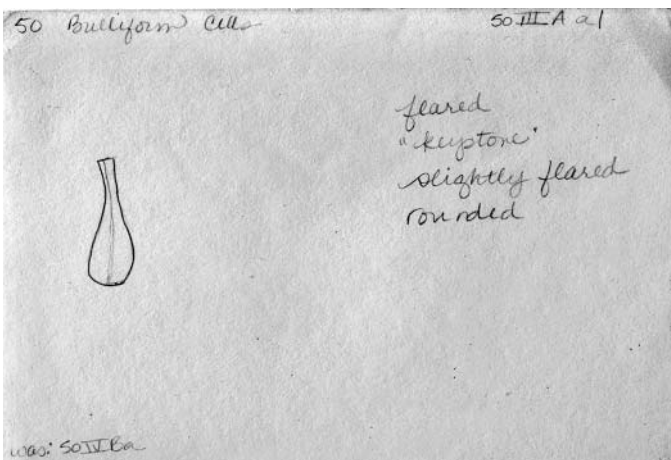 50 Bulliform Cells
50 III A a1
flared
"keystone"
slightly flared
rounded
was: 50 IV Ba